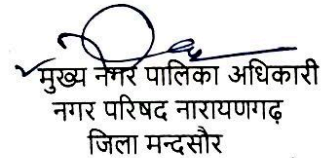 मुख्य नगर पालिका अधिकारी
नगर परिषद नारायणगढ़
जिला मन्दसौर